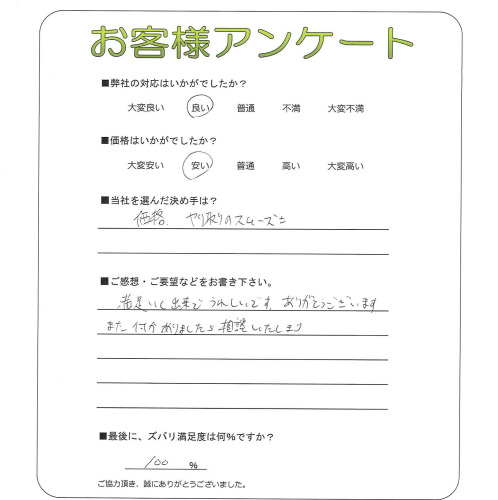 お客様アンケート
■弊社の対応はいかがでしたか？
大変良い 良い 普通 不満 大変不満
■価格はいかがでしたか？
大変安い 安い 普通 高い 大変高い
■当社を選んだ決め手は？
価格、やり取りのスムーズさ
■ご感想・ご要望などをお書き下さい。
満足いく出来で うれしいです。ありがとうございます
また 何かありましたら 相談いたします
■最後に、ズバリ満足度は何%ですか？
100 %
ご協力頂き、誠にありがとうございました。